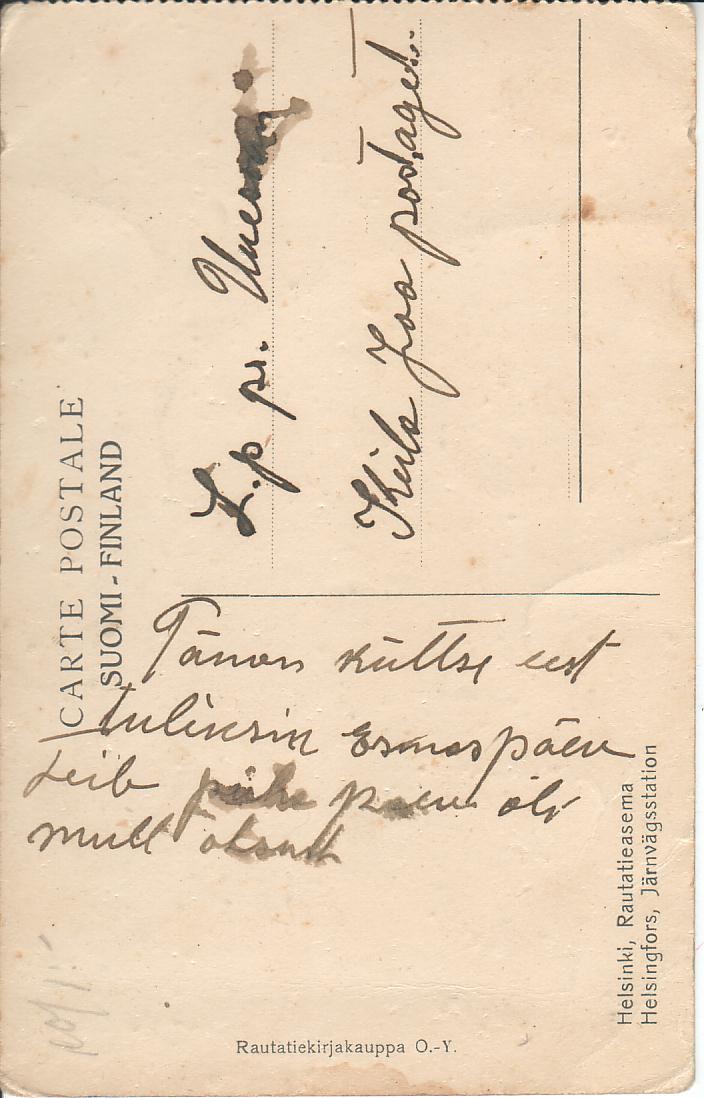 CARTE POSTALE
SUOMI - FINLAND
L. p pr.
Keila Joa postaget.
Tänan küttse eest
tulin esmaspäeu
Leib pühapäeu oli
mull otsas
Helsinki, Rautatieasema
Helsingfors, Järnvägsstation
Rautatiekirjakauppa O.-Y.